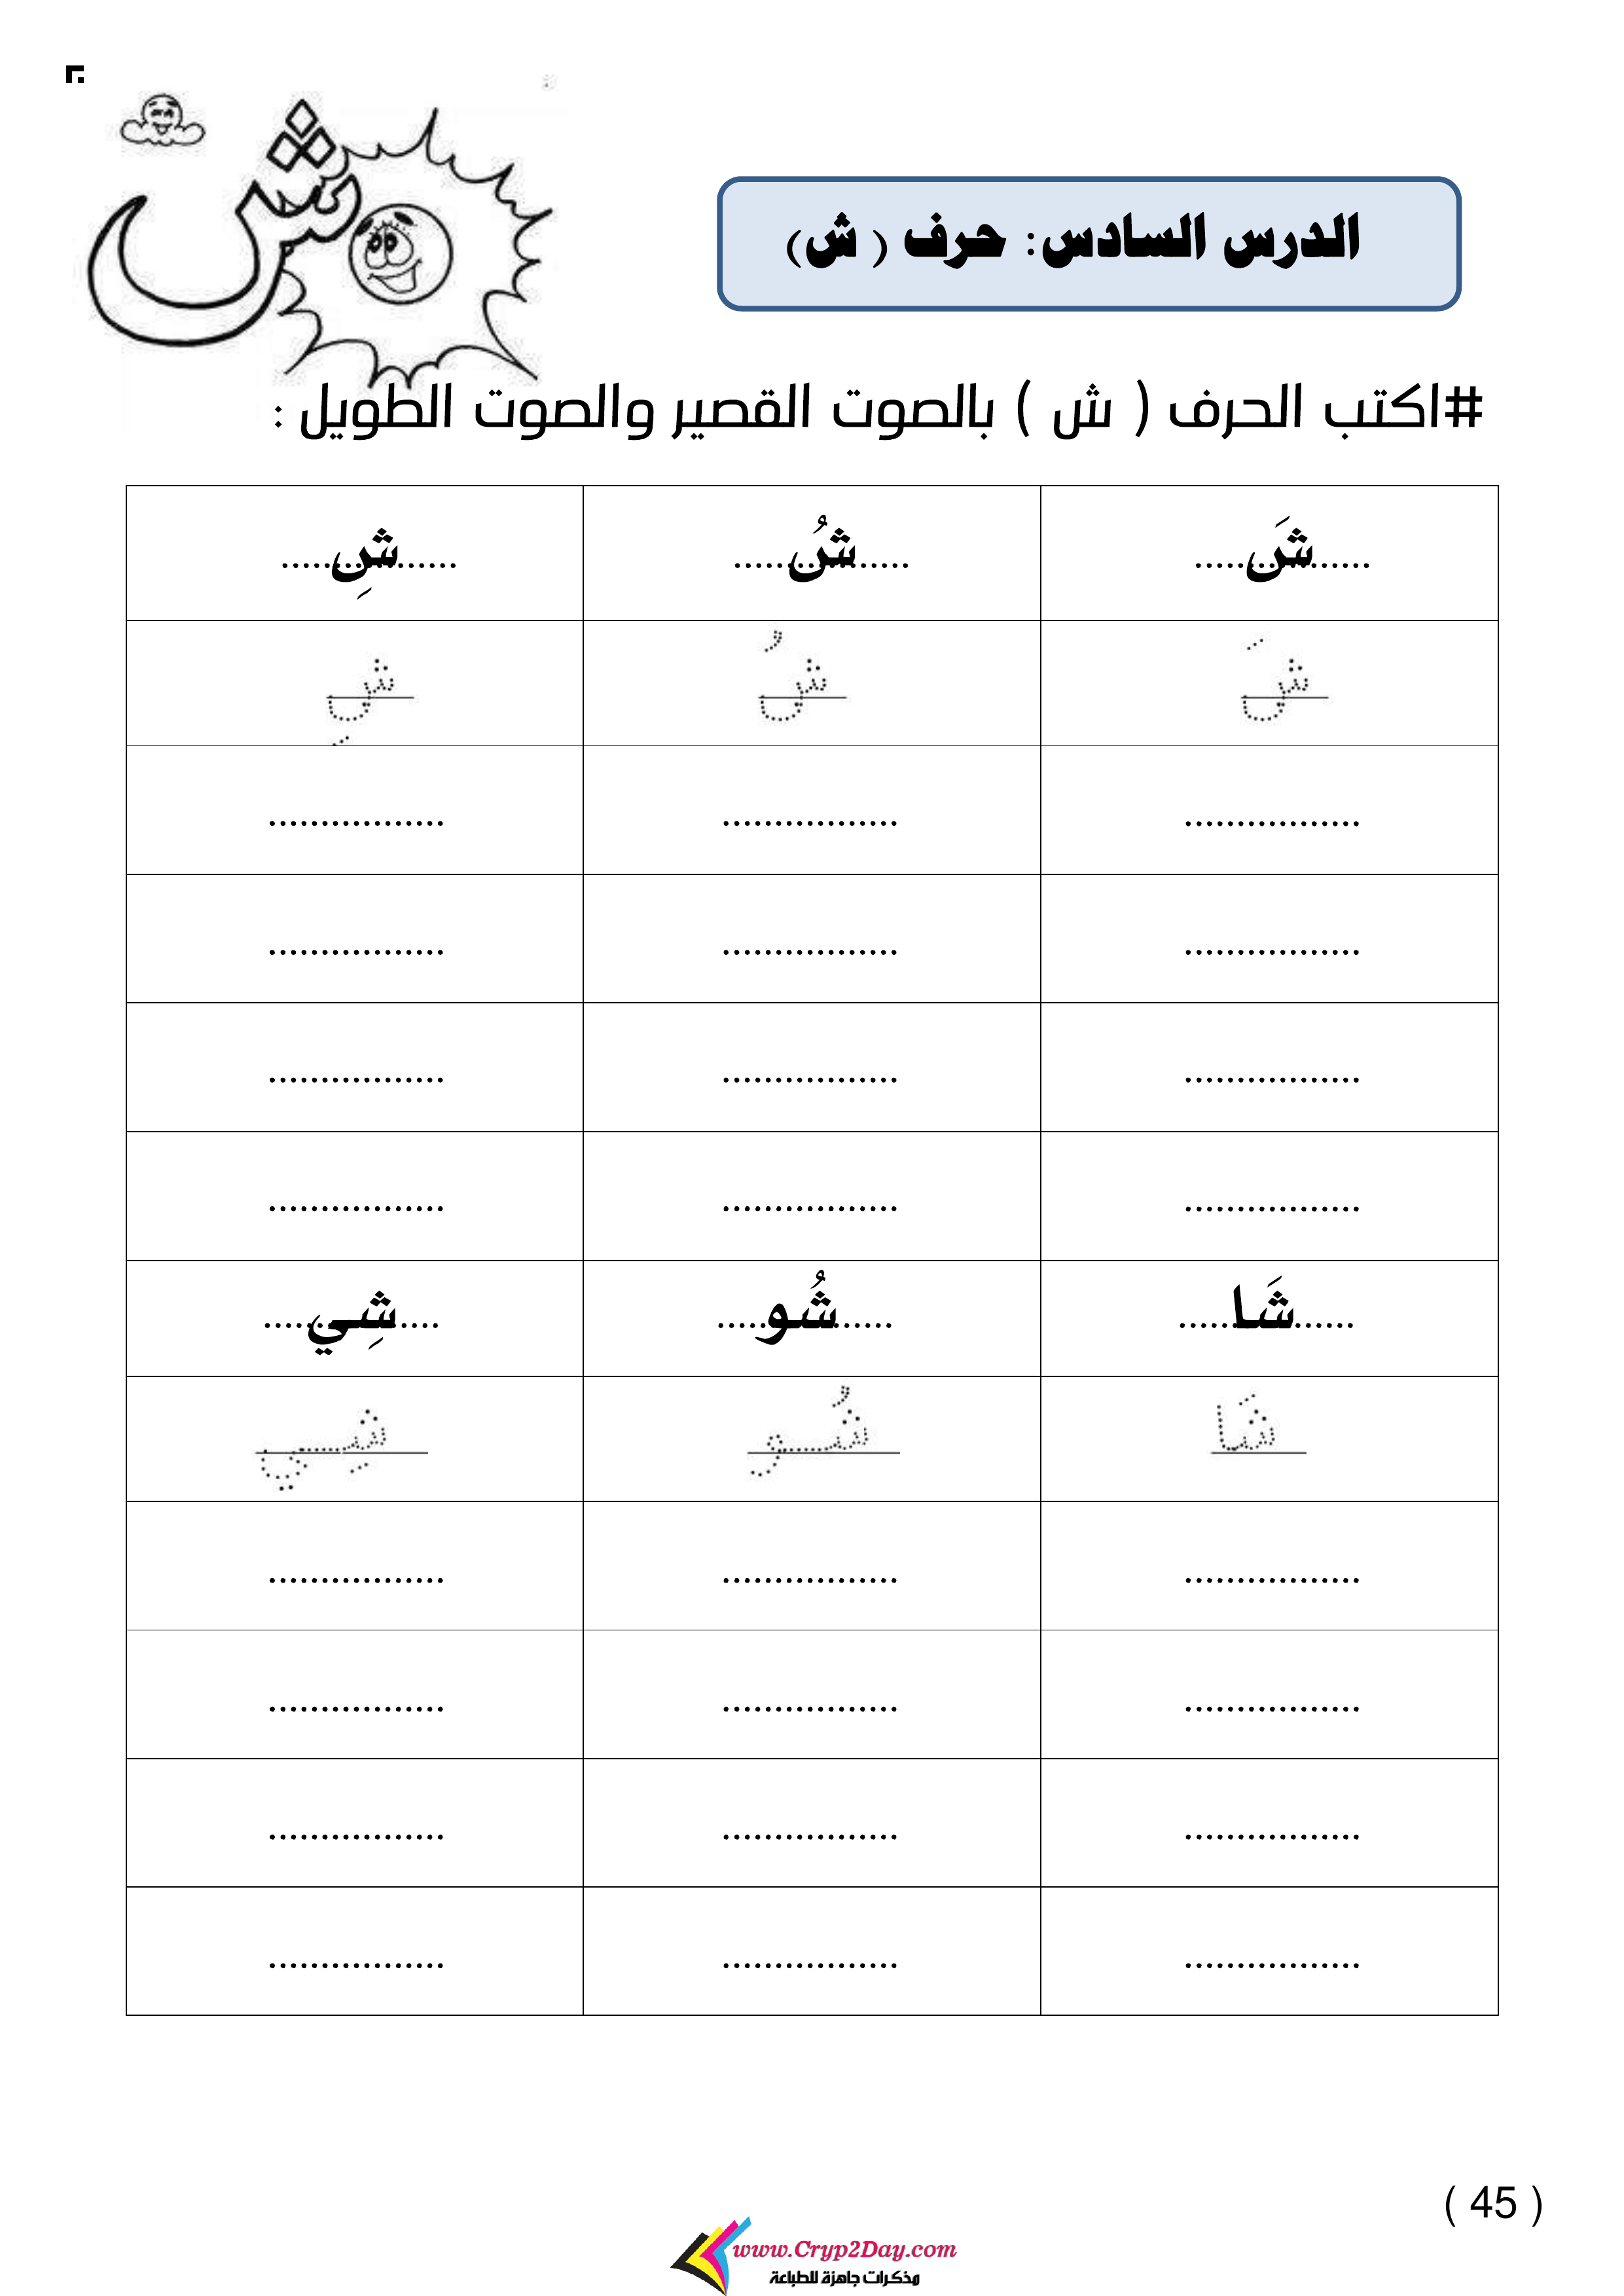 ش
الدرس السادس: حرف ( ش)
#اكتب الحرف ( ش ) بالصوت القصير والصوت الطويل :
شَ شُ شِ
شَ شُ شِ
................. ................. .................
................. ................. .................
................. ................. .................
................. ................. .................
شَا شُو شِي
شَا شُو شِي
................. ................. .................
................. ................. .................
................. ................. .................
................. ................. .................
( 45 )
www.Cryp2Day.com
مذكرات جاهزة للطباعة